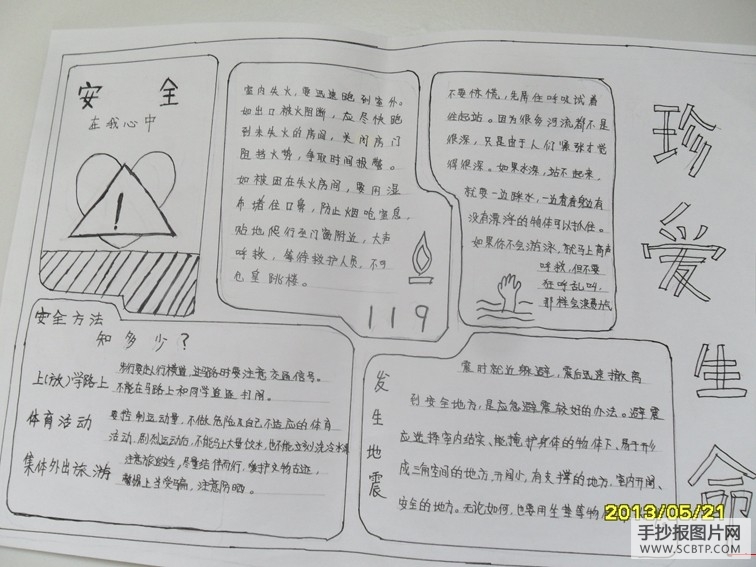 安 全
在我心中
!
室内失火,要迅速跑到室外。
如出口被火阻断,应尽快跑
到未失火的房间,关闭房门
阻挡火势,争取时间报警。
如被困在失火房间,要用湿
布堵住口鼻,防止烟呛窒息,
贴地爬行至门窗附近,大声
呼救,等待救护人员,不可
仓皇跳楼。
119
不要惊慌,先屏住呼吸试着
站起站。因为很多河流都不是
很深,只是由于人们紧张才觉
得很深。如果水深,站不起来,
就要一边踩水,一边看看身边有
没有漂浮的物体可以抓住。
如果你不会游泳,就马上高声
呼救,但不要
狂呼乱叫,
那样会浪费力气
珍爱生命
安全方法
知多少?
上(放)学路上
要走人行横道,过马路时要注意交通信号。
不能在马路上和同学追逐打闹。
体育活动
要控制运动量,不做危险及自己不适应的体育
活动,剧烈运动后,不能马上大量饮水,也不能立刻洗冷水澡
集体外出旅游
注意旅途安全,尽量结伴而行,维护文物古迹,
警惕上当受骗,注意防晒。
发生地震
震时就近躲避,震后迅速撤离
到安全地方,是应急避震较好的办法。避震
应选择室内结实、能掩护身体的物体下、易于形
成三角空间的地方,开间小,有支撑的地方,室内开阔、
安全的地方。无论如何,也要用坐垫等物
2013/05/21
手抄报图片网
WWW.SCBTP.COM